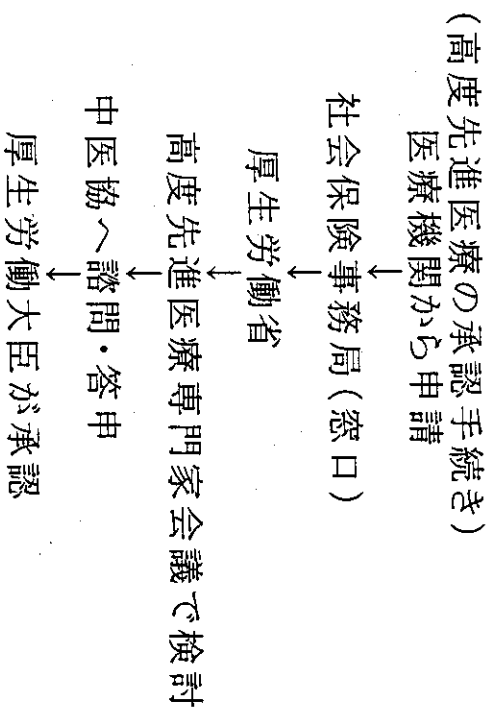 (高度先進医療の承認手続き)
医療機関から申請
↓
社会保険事務局(窓口)
↓
厚生労働省
↓
高度先進医療専門家会議で検討
↓
中医協へ諮問・答申
↓
厚生労働大臣が承認